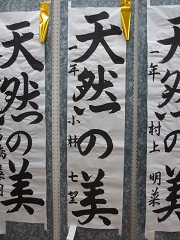 天然の美
一年 村上 明菜
天然の美
一年 小林 七望
天然の美